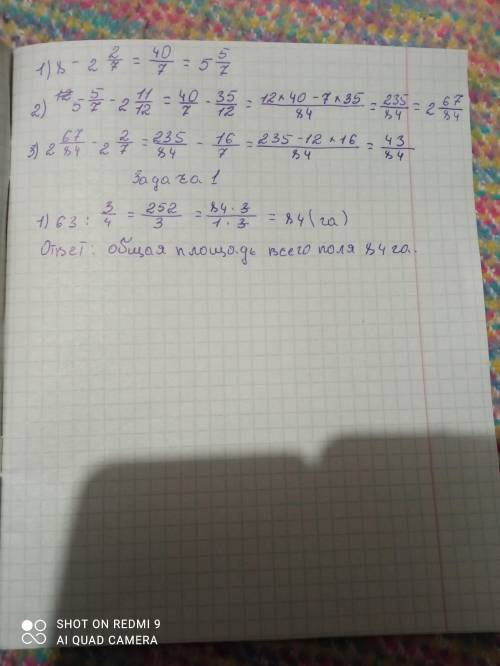 1) 8 - 2 2/7 = 40/7 = 5 5/7
2) 5 5/7 - 2 11/12 = 40/7 - 35/12 = 12*40-7*35/84 = 235/84 = 2 67/84
3) 2 67/84 - 2 2/7 = 235/84 - 16/7 = 235-12*16/84 = 43/84
Задача 1
1) 63 : 3/4 = 252/3 = 84·3/1·3 = 84 (га)
Ответ: общая площадь всего поля 84 га.
SHOT ON REDMI 9
AI QUAD CAMERA